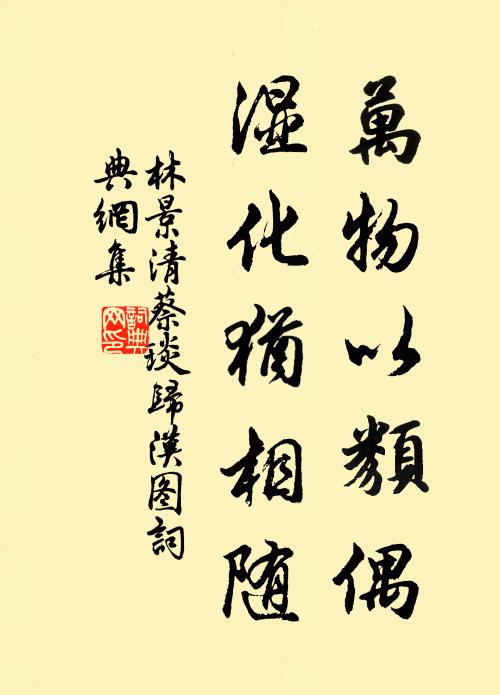 萬物以類偶
湿化猶相随
林景清蔡琰歸漢图詞
典網集
詞典
网印